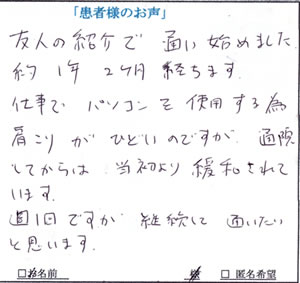 「患者様のお声」
友人の紹介で 通い始めました
約1年2ヶ月 経ちます.
仕事で パソコンを使用する為
肩こりが ひどいのですが. 通院
してからは 当初より 緩和されて
います.
週1回ですが 継続して 通いたい
と思います.
□お名前 □匿名希望